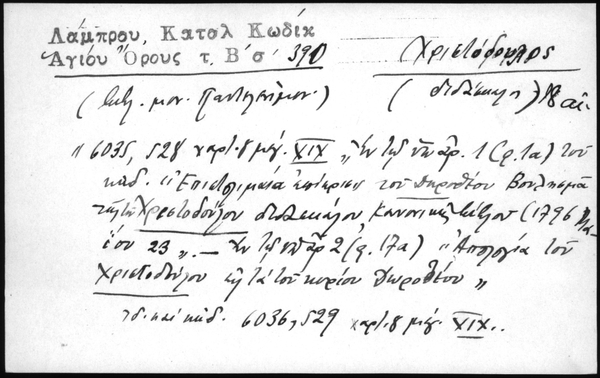 Λάμπρου, Κατολ Κωδίκ
Ἁγίου Ὄρους τ. Β΄ σ΄ 390
Χριστόδουλος
(βιβλ. μον. Παντελεήμον.)
(διδάσκαλος) 18 αἰ.
" 6035, 528 χαρτ. 8 μεγ. XIX " Ἐν τῷ ὑπ' ἀρ. 1 (φ. 1α) τοῦ
κώδ. " Ἐπιστημαία ἐπίκρισις τοῦ Δωροθέου Βουλησμᾶ
Χριστοδούλου διδασκάλου, κανονικῆς βίβλου (1796
23 " . — Ἐν τῷ ὑπ' ἀρ 2 (φ. 17α) " Ἀπολογία τοῦ
Χριστοδούλου εἰς τὰ τοῦ κυρίου Δωροθέου "
ἰδ. καὶ κώδ. 6036, 529 χαρτ. 8 μεγ. XIX..